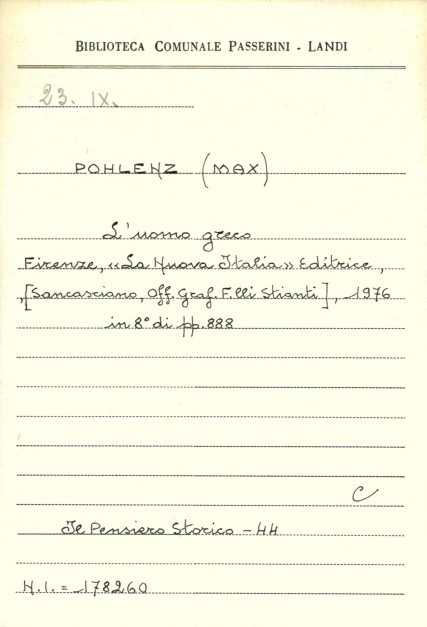 BIBLIOTECA COMUNALE PASSERINI - LANDI
23. IX.
POHLENZ (MAX)
L'uomo greco
Firenze, «La Nuova Italia» Editrice,
[Sancasciano, Off. Graf. F.lli Stianti], 1976
in 8° di pp. 888
C
Il Pensiero Storico - 44
N.I. = 178260